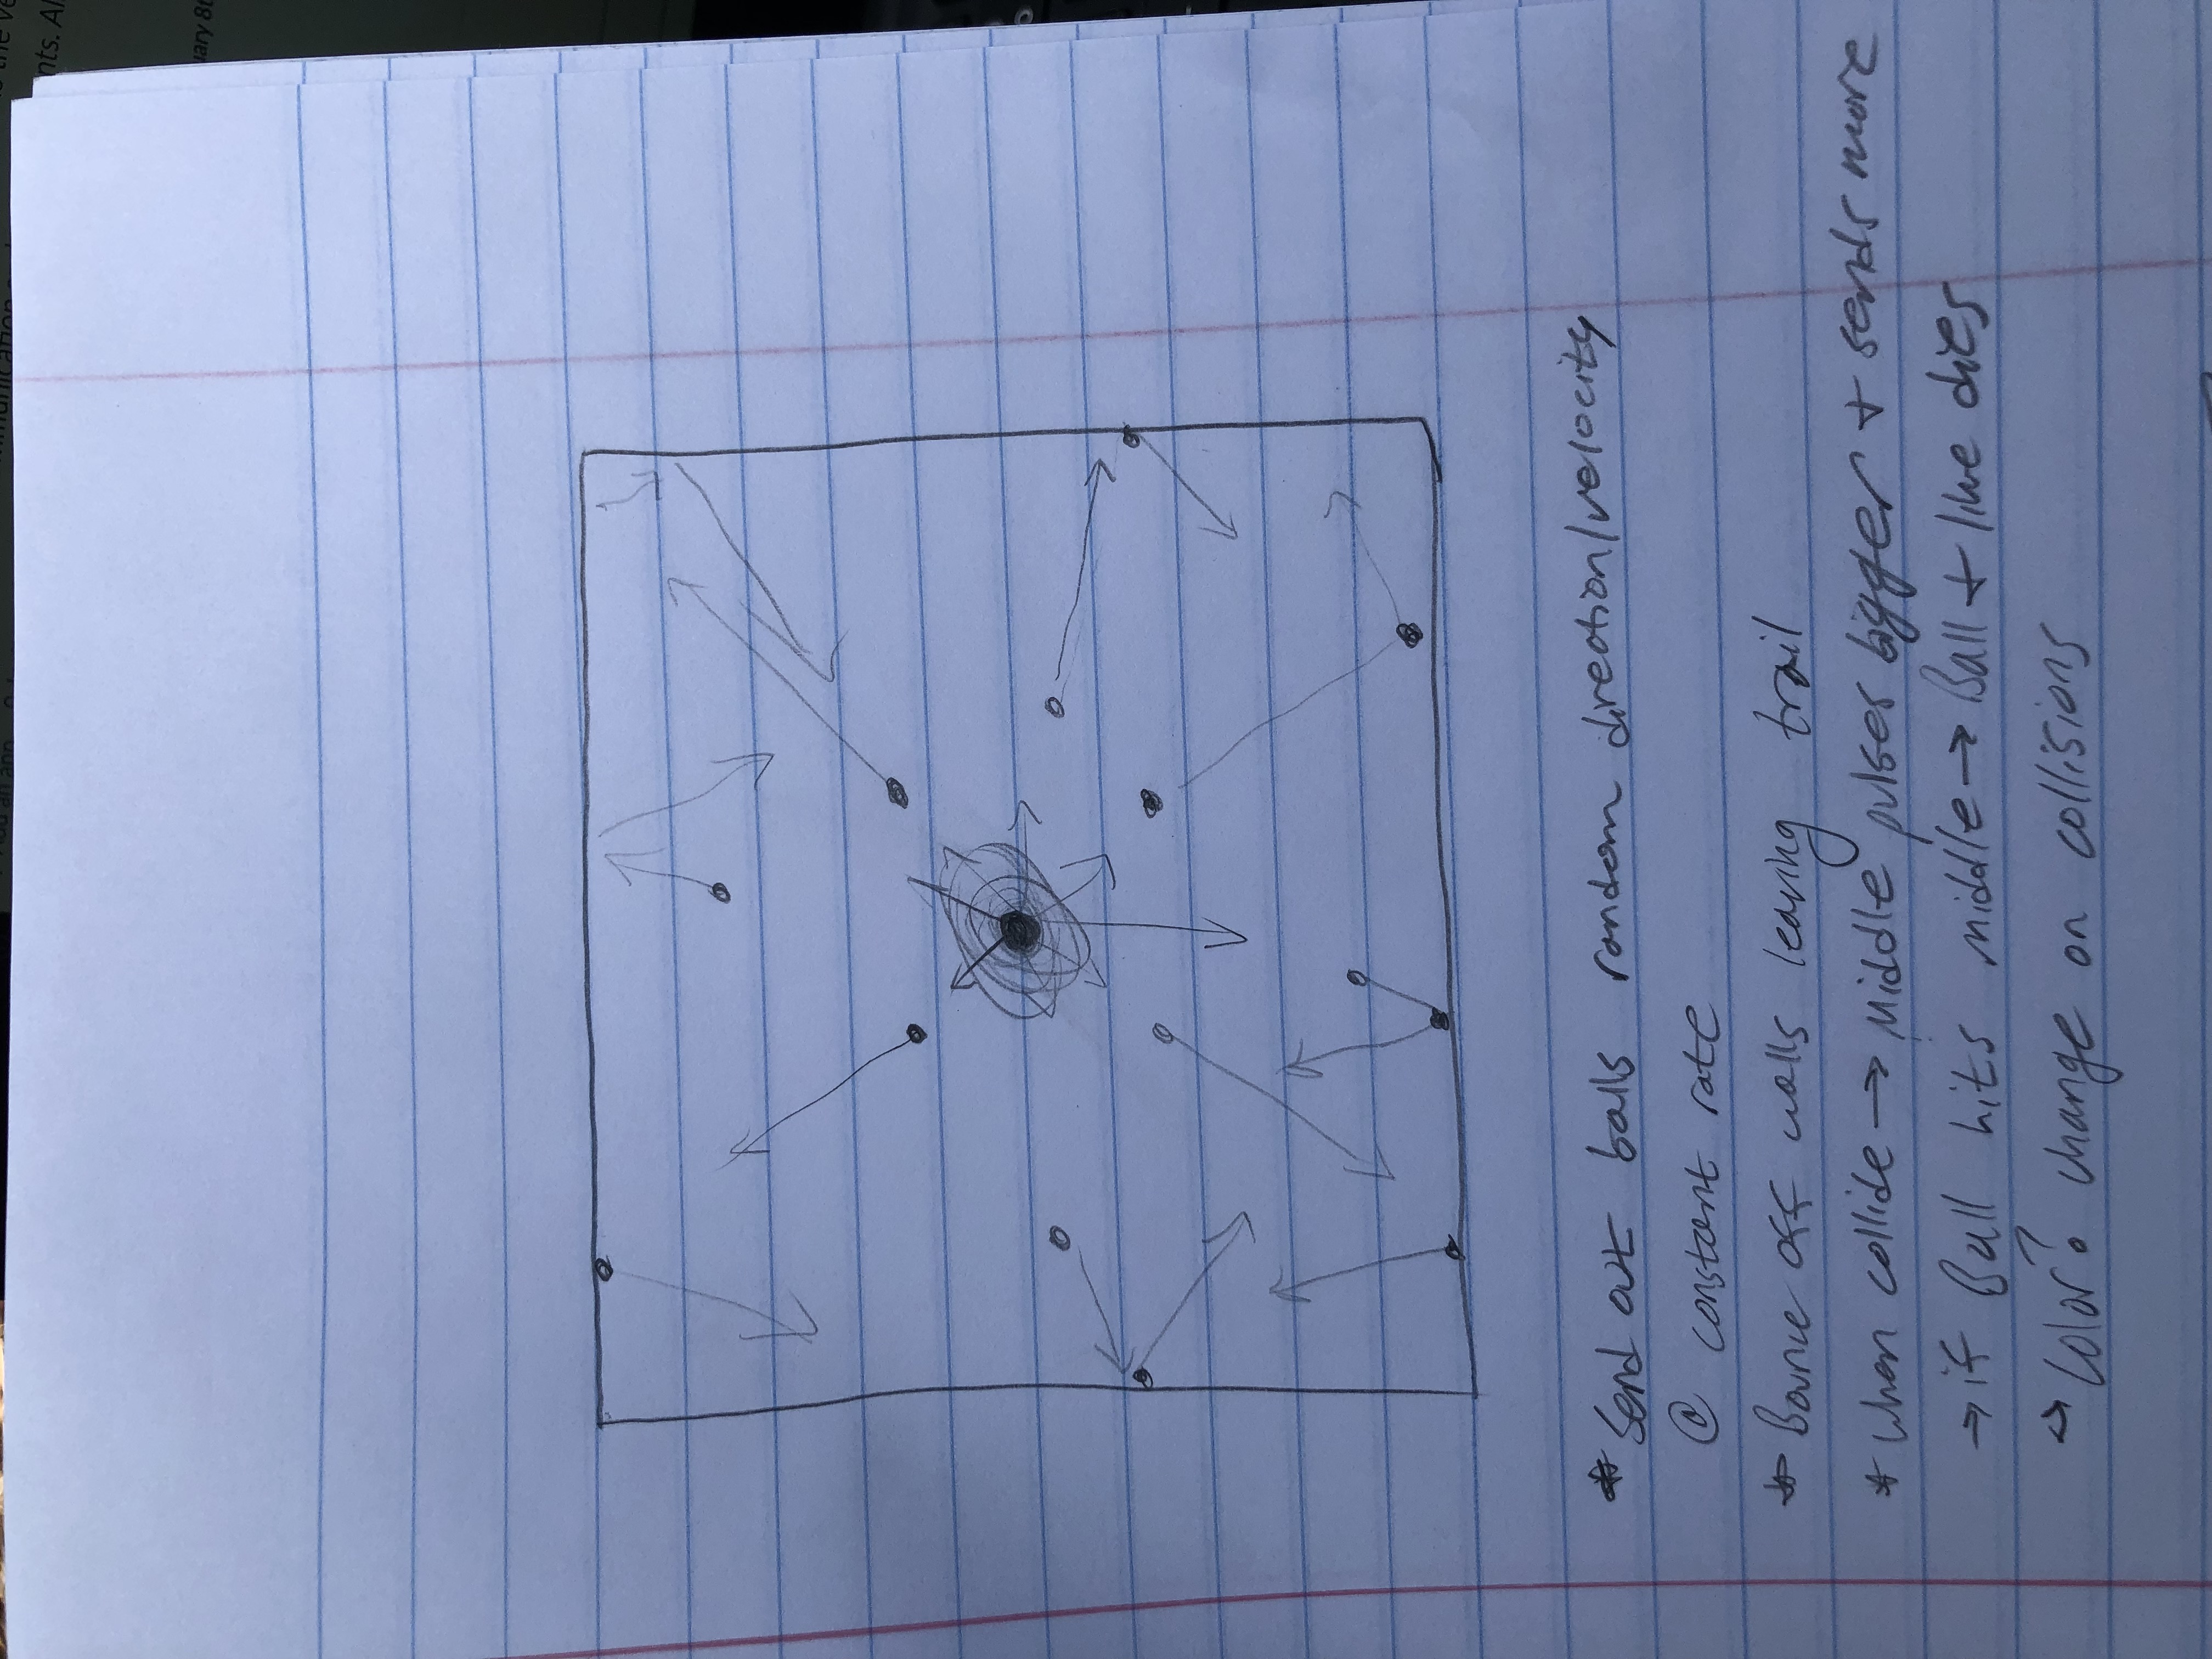 nts. Al
uary 8t
* Send out balls random direction/velocity
@ constant rate
* Bounce off walls leaving trail
* when collide → Middle pulses bigger + sends more
→ if Ball hits middle → Ball + line dies
→ Color? change on collisions